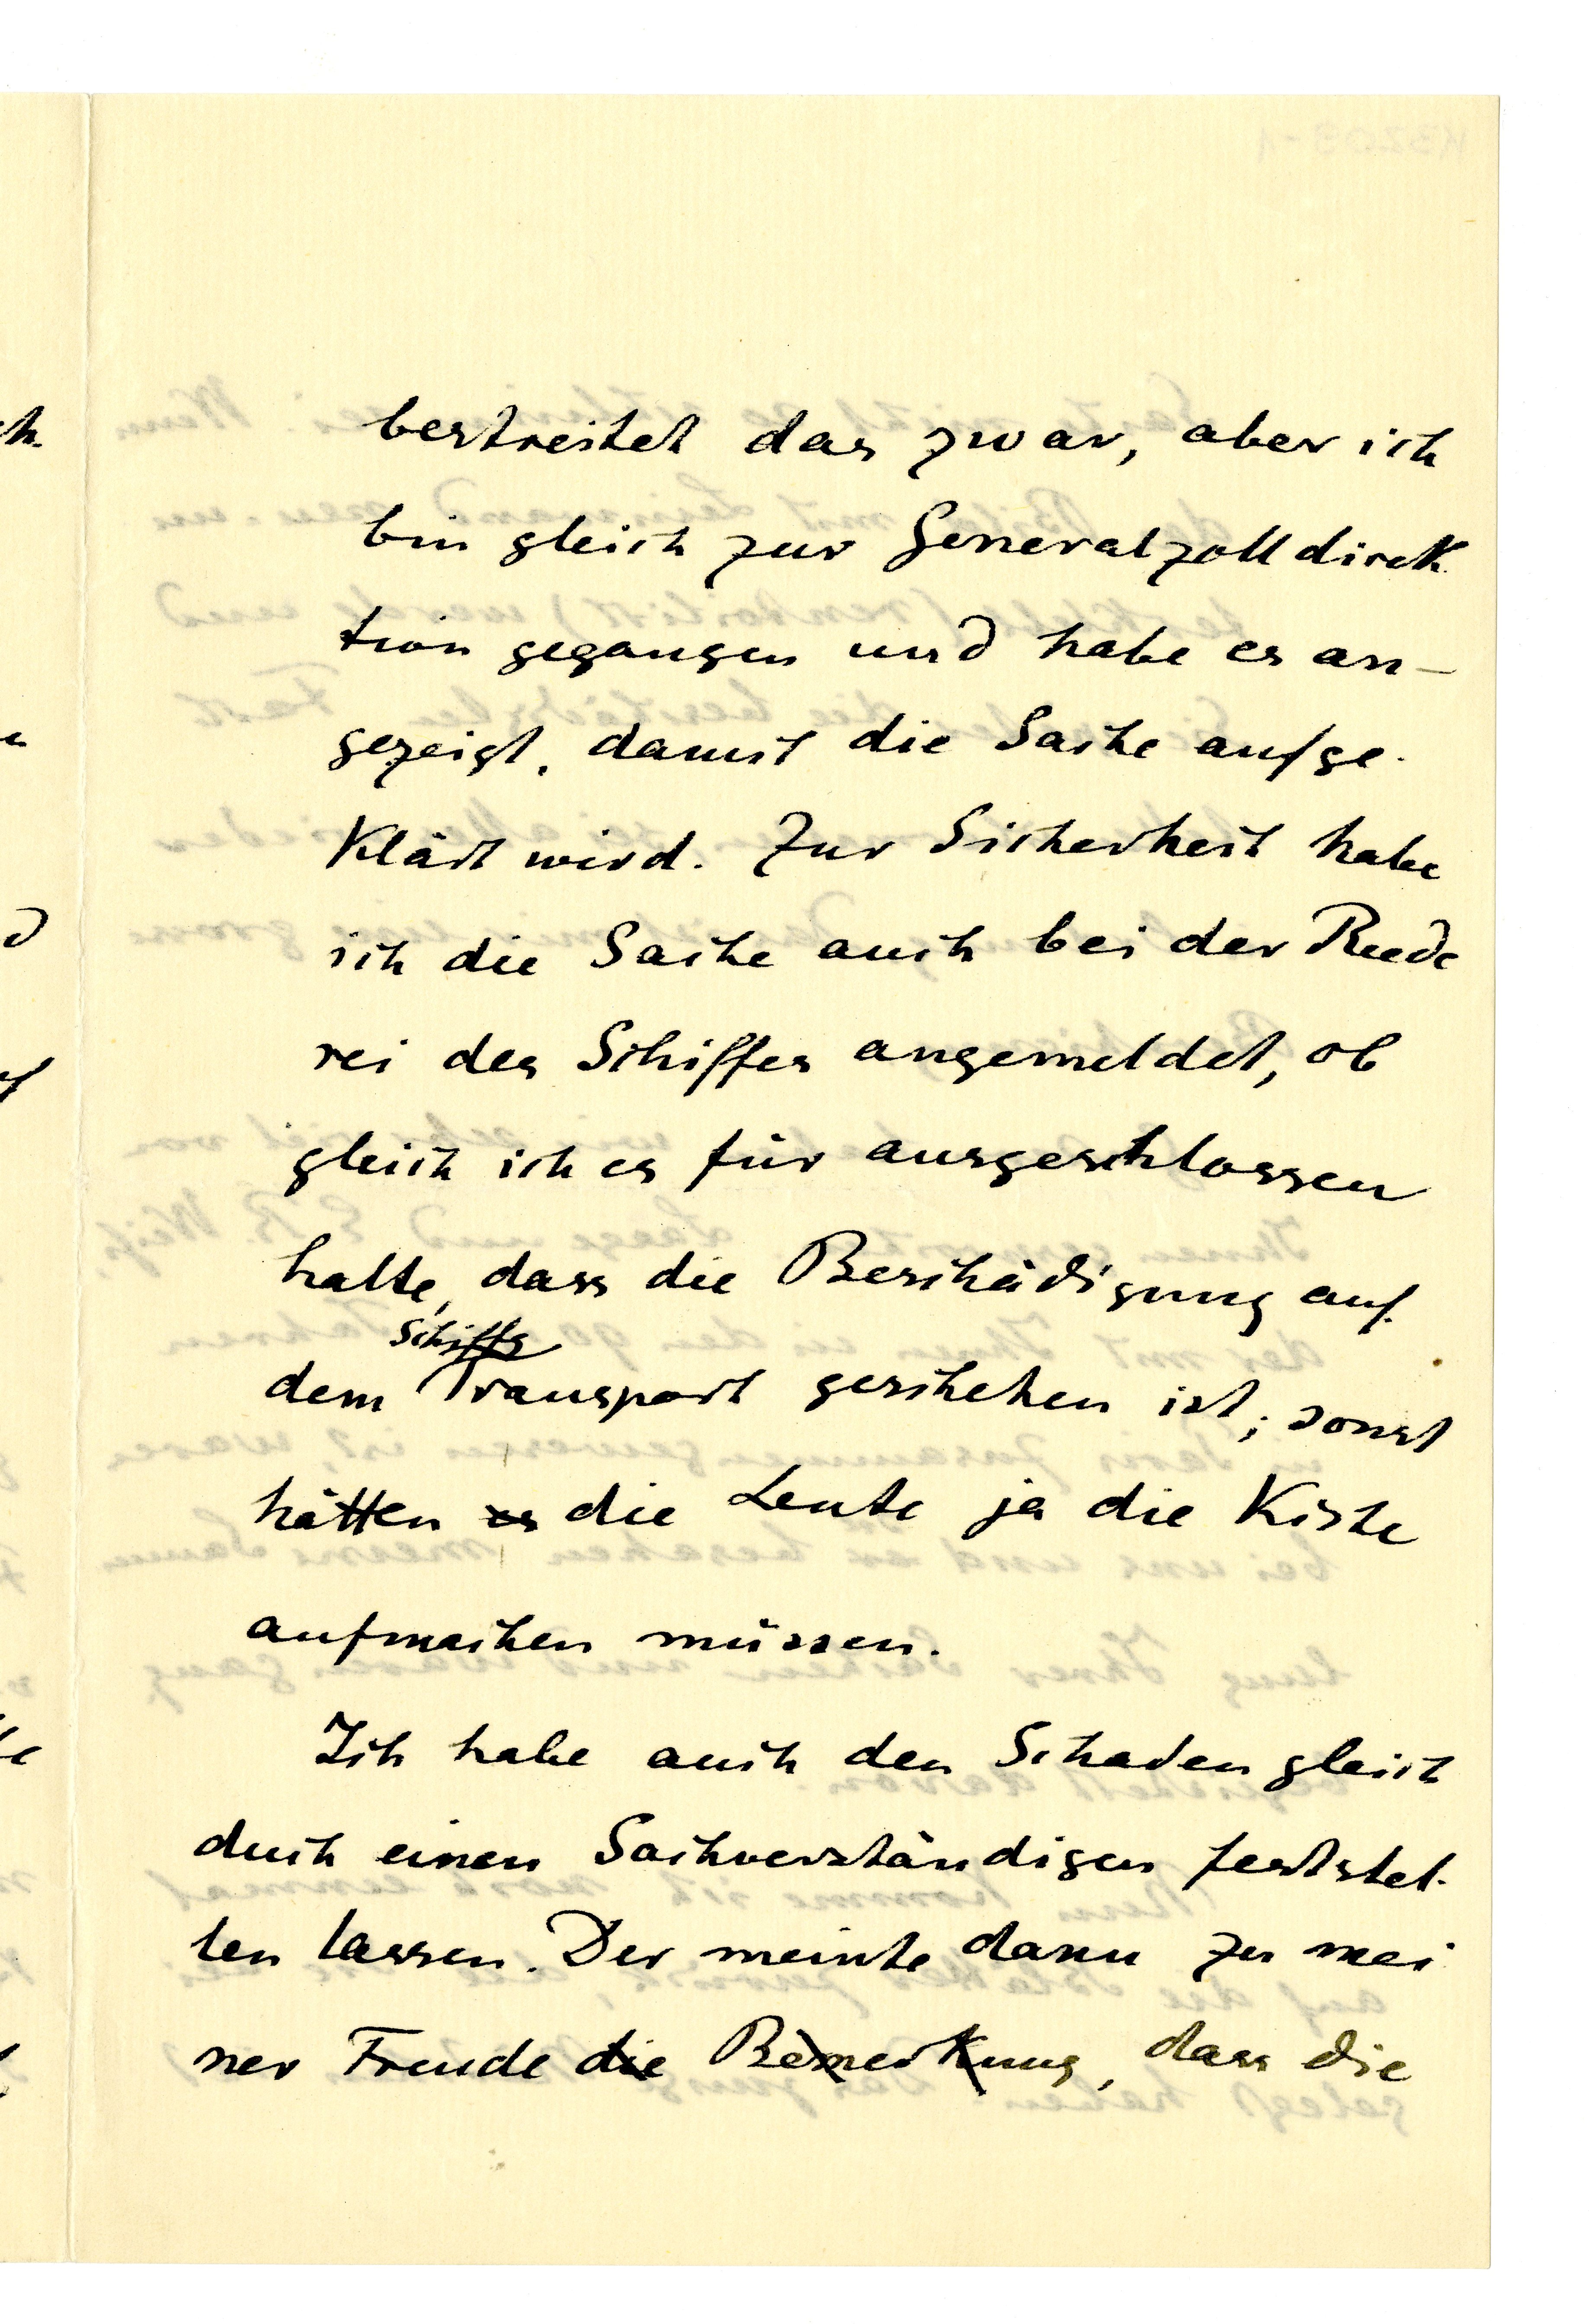 bestreitet das zwar, aber ich
bin gleich zur Generalzolldirek
tion gegangen und habe es an-
gezeigt, damit die Sache aufge-
klärt wird. Zur Sicherheit habe
ich die Sache auch bei der Reede
rei des Schiffes angemeldet, ob
gleich ich es für ausgeschlossen
halte, dass die Beschädigung auf
Schiffs
dem Transport geschehen ist; sonst
hätten es die Leute ja die Kiste
aufmachen müssen.
Ich habe auch den Schaden gleich
duch einen Sachverständigen festстel-
len lassen. Der meinte dann zu mei
ner Freude die Bemerkung, dass die